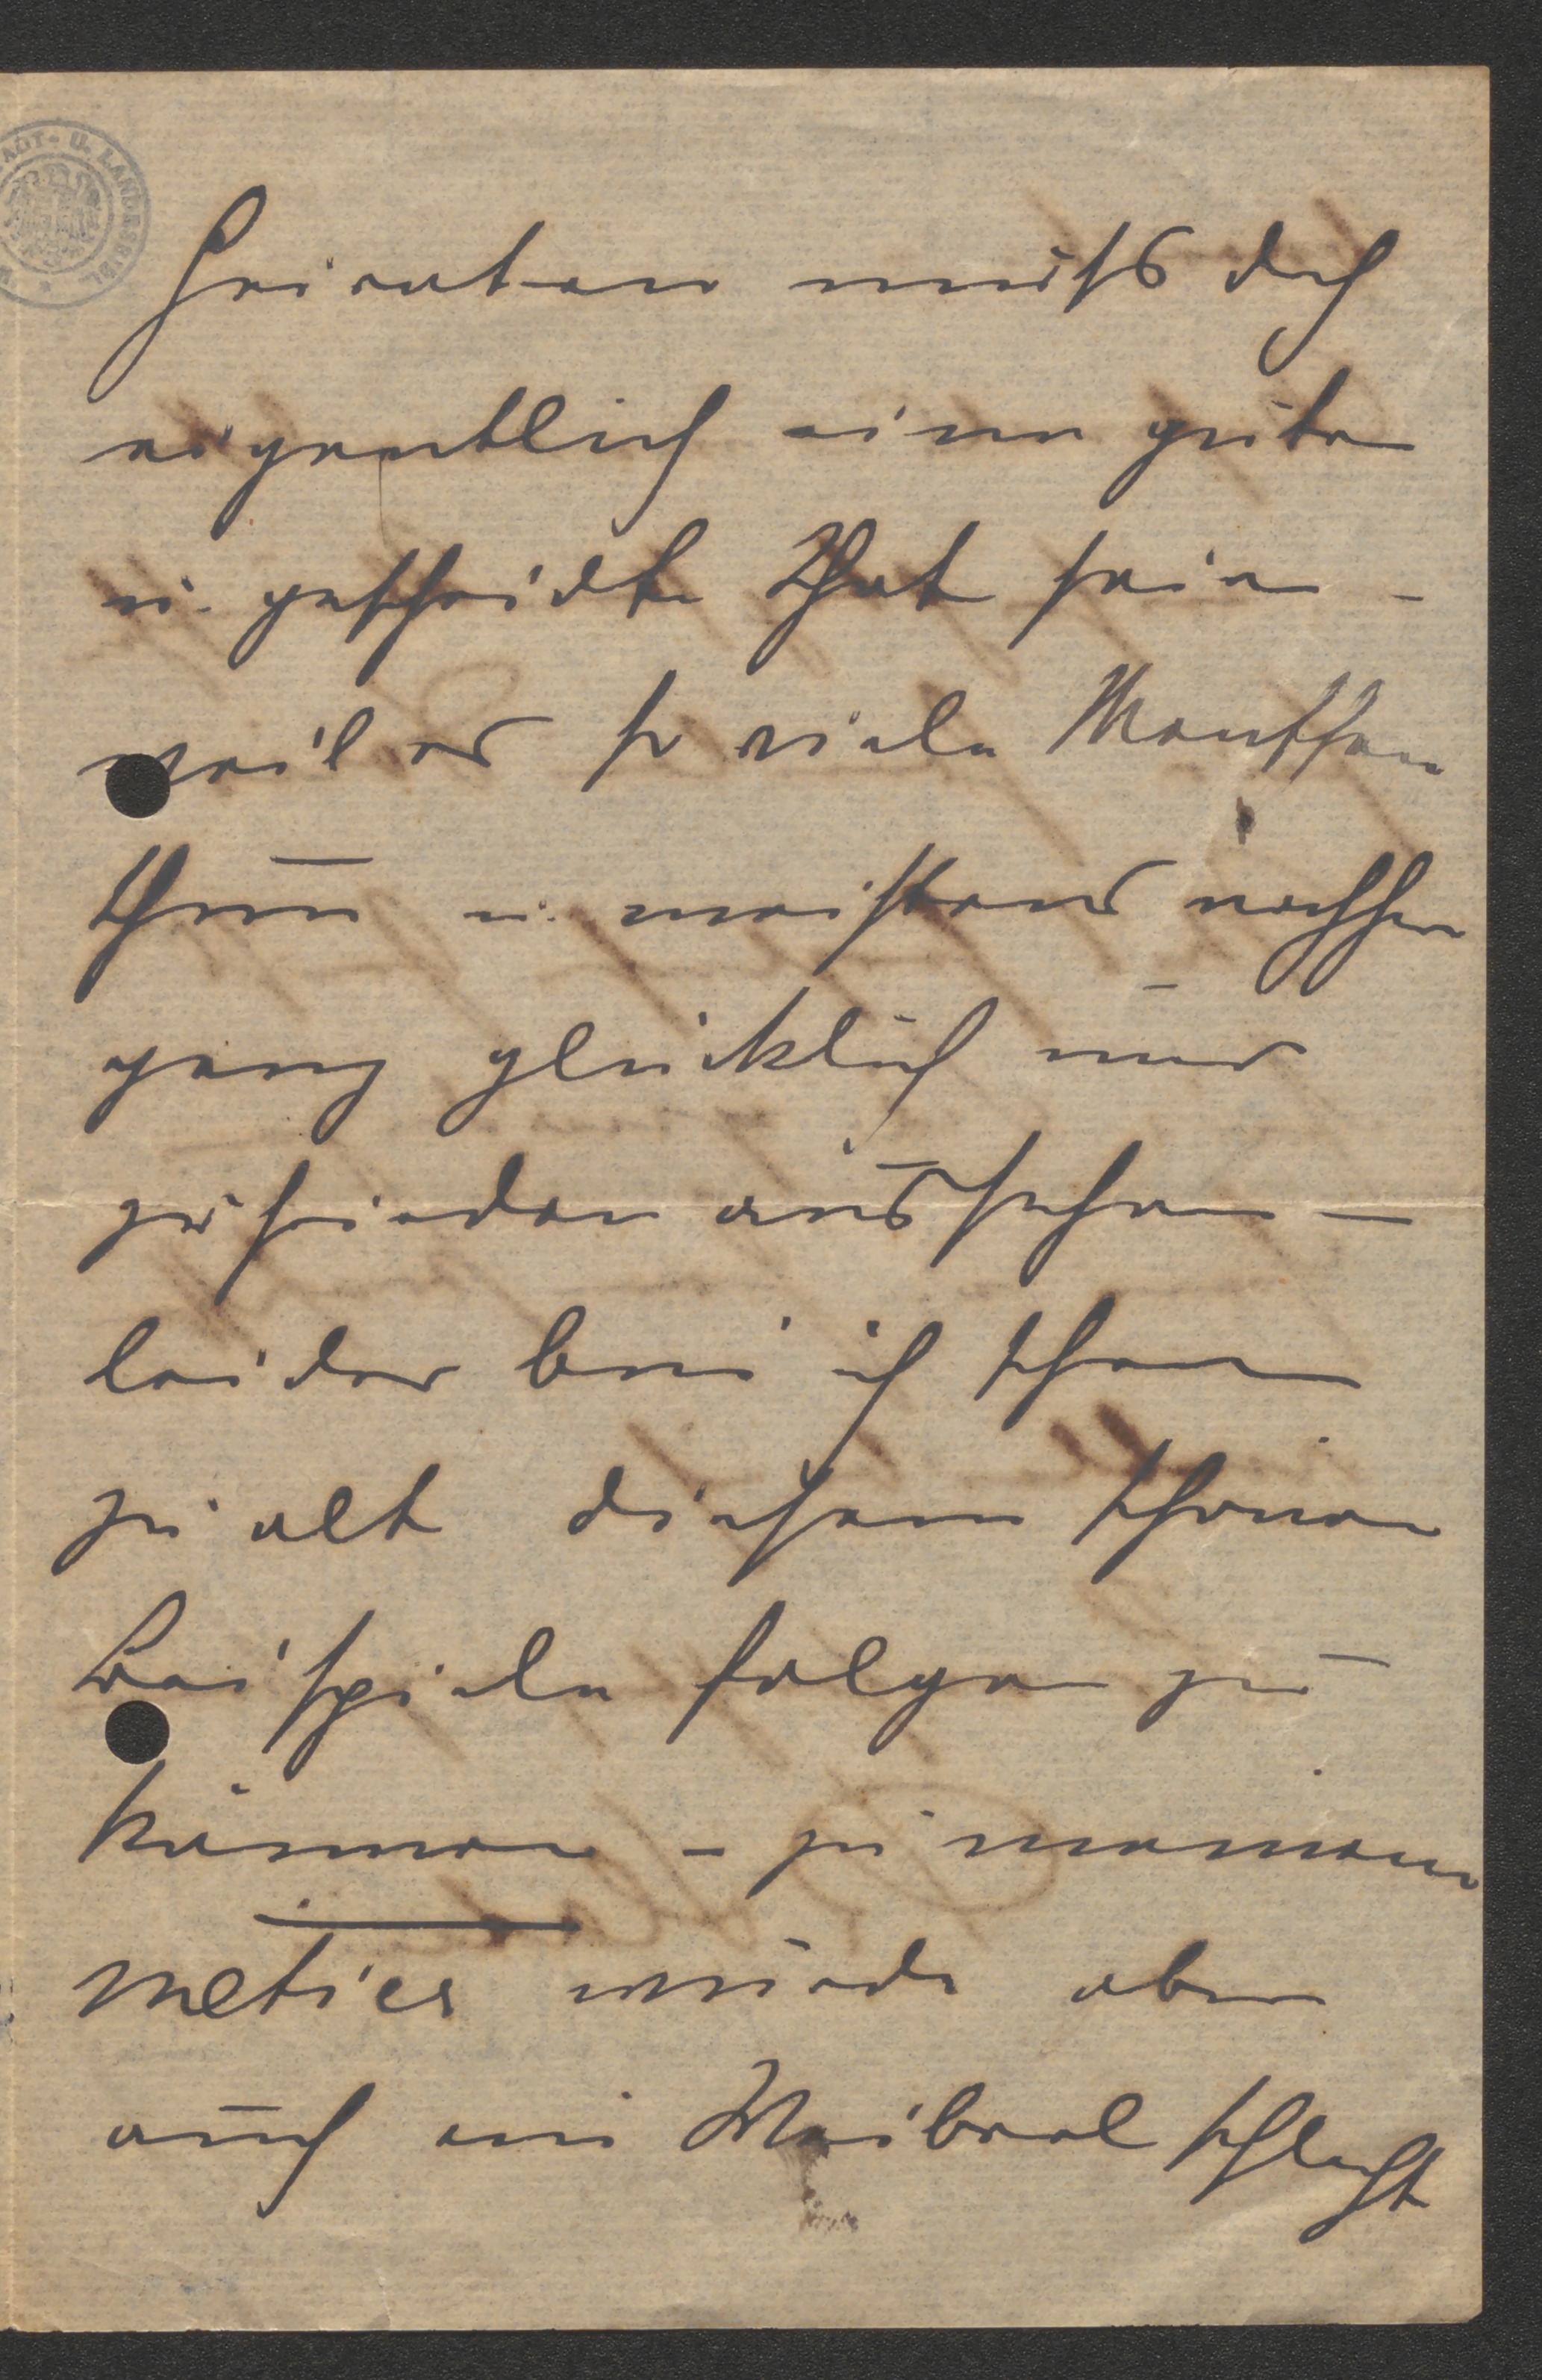 STADT- U. LANDESBIBL
Heiraten muß doch
eigentlich eine gute
u. gescheidte That sein –
weil es so viele Menschen
thun u. meistens nachher
ganz glücklich und
zufrieden aussehen –
leider bin ich schon
zu alt diesem schönen
Beispiele folgen zu
können – zu meinem
Metier würde aber
auch ein Weiberl schlecht